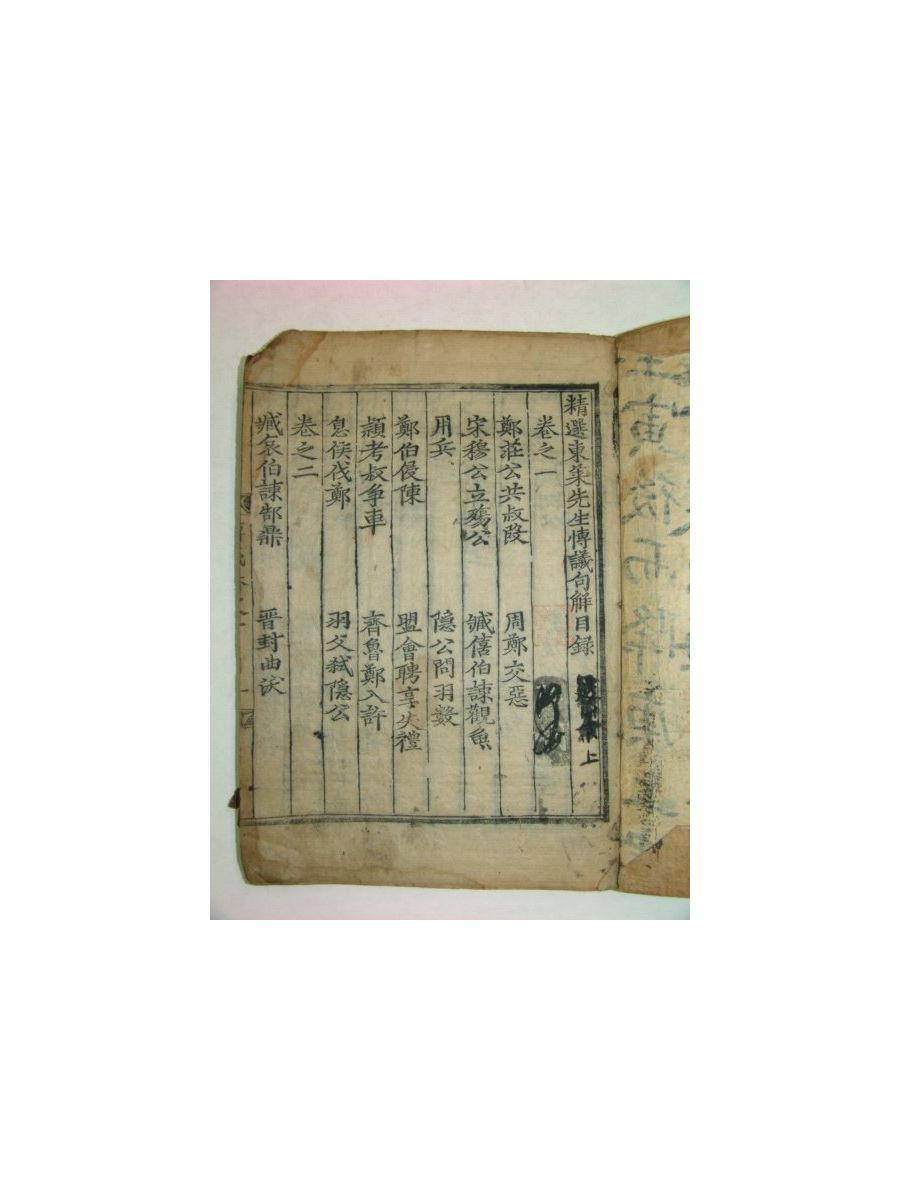 精選東萊先生博議句解目録
上
卷之一
鄭莊公共叔段 周鄭交惡
宋穆公立殤公 臧僖伯諫觀魚
用兵 隱公問羽數
鄭伯侵陳 盟會聘享失禮
頴考叔争車 齊魯鄭入許
息侯伐鄭 羽父弑隱公
卷之二
臧哀伯諫郜鼎 晋封曲沃